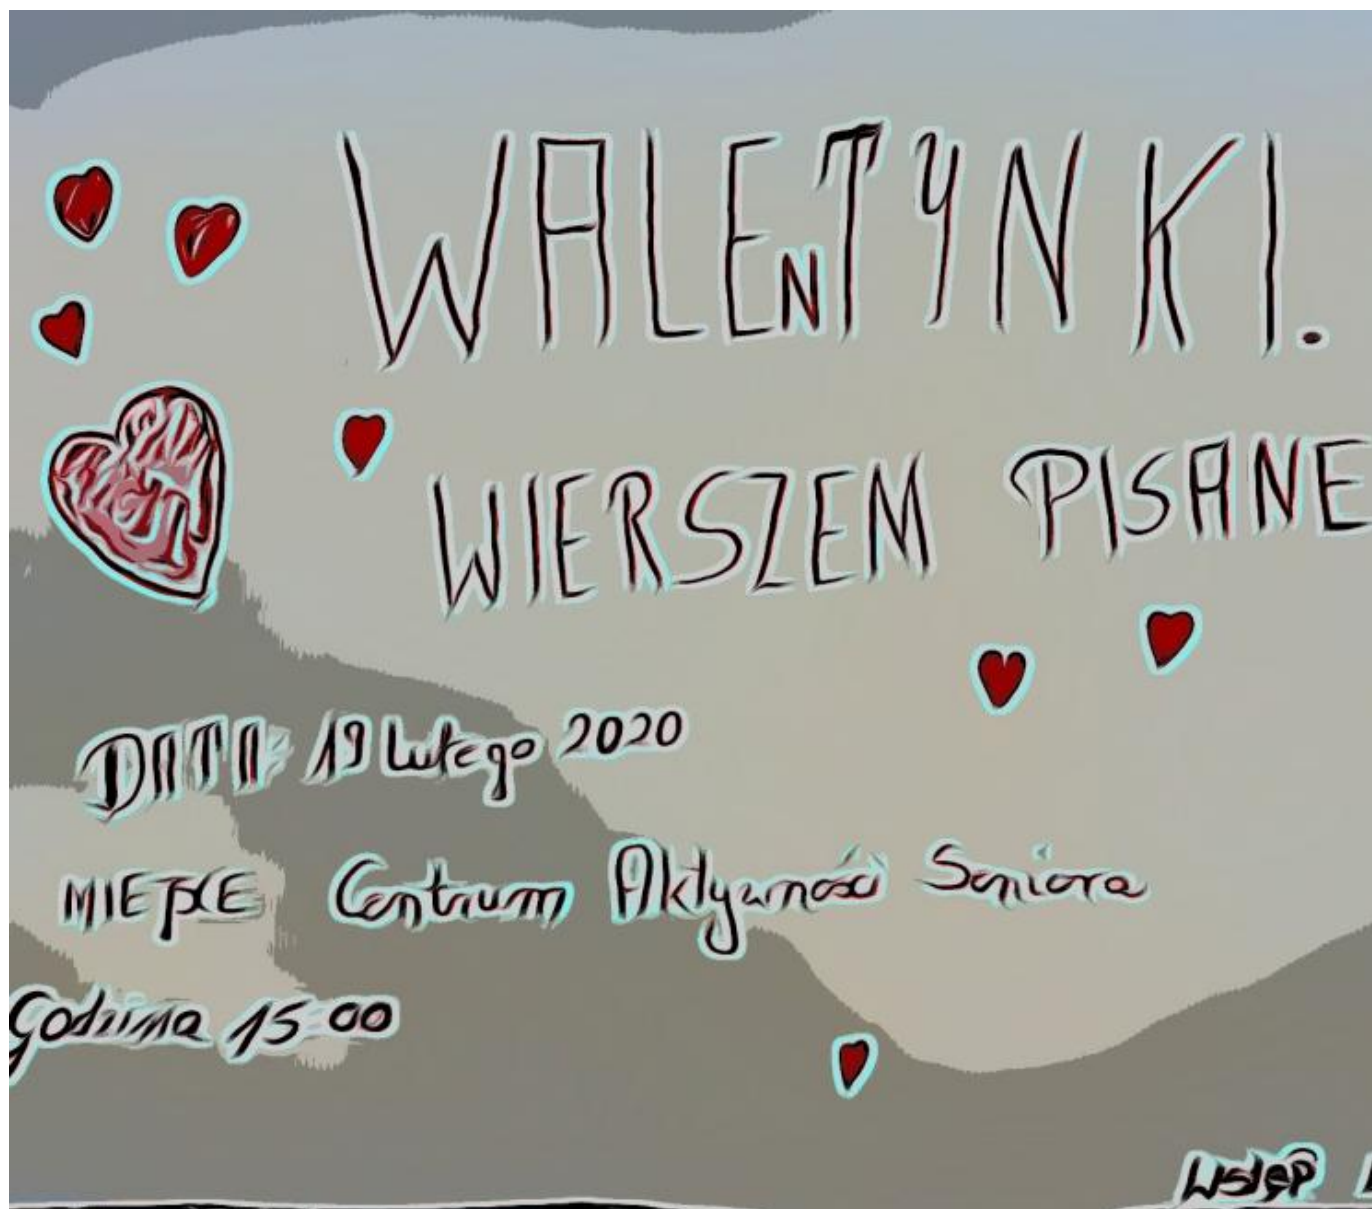 WALENTYNKI.
WIERSZEM PISANE
DATA: 19 Lutego 2020
MIEJSCE Centrum Aktywności Seniora
Godzina 15 00
Wstęp